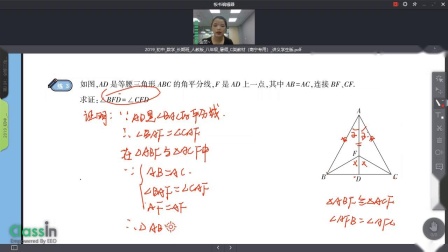 板书编辑器
练3
如图,AD是等腰三角形ABC的角平分线,F是AD上一点,其中AB=AC,连接BF,CF.
求证:∠BFD=∠CFD
证明:∵AD是∠BAC的平分线
∴∠BAF=∠CAF
在△ABF与△ACF中
∵ AB=AC
∠BAF=∠CAF
AF=AF
∴△AB
A
1 2
F
x x
B D C
△ABF≌△ACF
∠AFB=∠AFC
classin
Empowered By EEO